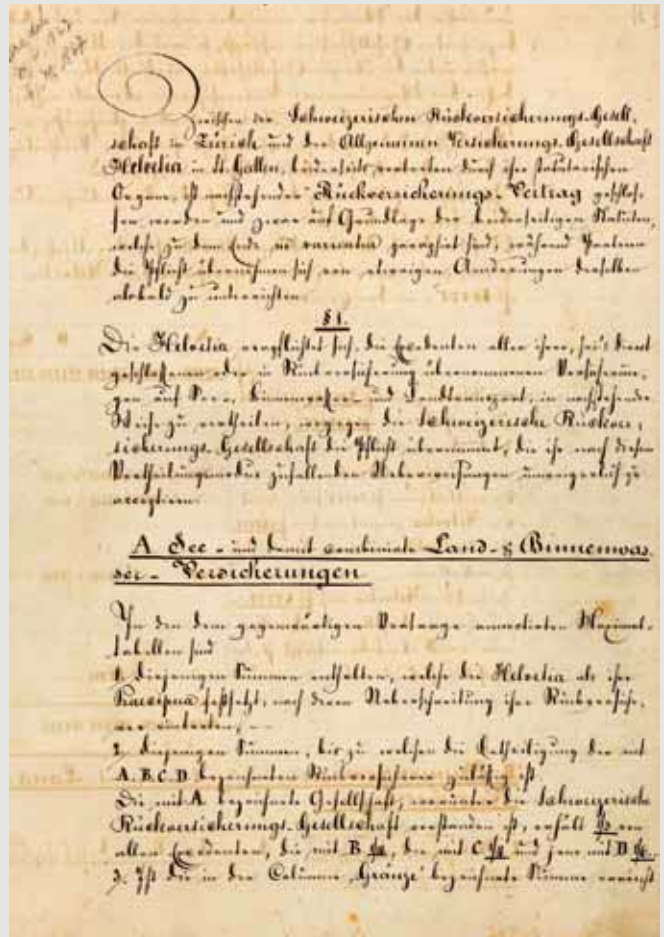 Zwischen der Schweizerischen Rückversicherungs-Gesell-
schaft in Zürich und der Allgemeinen Versicherungs-Gesellschaft
Helvetia in St. Gallen, beiderseits vertreten durch ihre statutarischen
Organe, ist nachstehender Rückversicherungs-Vertrag geschlos-
sen worden und zwar auf Grundlage der beiderseitigen Statuten,
welche zu dem Ende ne varietur gezeichnet sind, während Parteien
die Pflicht übernehmen sich von etwaigen Änderungen derselben
alsbald zu unterrichten.
§ 1.
Die Helvetia verpflichtet sich, die Excedenten aller ihrer, sei's direct
geschlossenen oder in Rückversicherung übernommenen Versicherun-
gen auf See-, Binnenwasser und Landtransport, in nachstehender
Weise zu vertheilen, wogegen die Schweizerische Rückver-
sicherungs-Gesellschaft die Pflicht übernimmt, die ihr nach diesem
Vertheilungsmodus zufallenden Ueberweisungen unweigerlich zu
acceptiren.
A See- und damit combinirte Land- & Binnenwas
ser-Versicherungen
In den dem gegenwärtigen Vertrage annectirten Maximal-
tabellen sind
1. diejenigen Summen enthalten, welche die Helvetia als ihr
Praecipua festsetzt, nach deren Ueberschreitung ihre Rückversiche-
rer eintreten,
2. diejenigen Summen, bis zu welchen die Betheiligung der mit
A.B.C.D bezeichneten Rückversicherer zulässig ist
Die mit A bezeichnete Gesellschaft, worunter die Schweizerische
Rückversicherungs-Gesellschaft verstanden ist, erhält von
allen Excedenten, die mit B, die mit C und jene mit D
3. Ist die in der Columne "Gränze" bezeichnete Summe erreicht